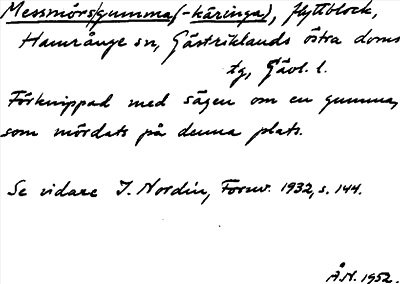 Messmörsgumma (-käringa), flyttblock,
Hamrånge sn, Gästriklands östra doms
tg, Gävl. l.
Förknippad med sägen om en gumma,
som mördats på denna plats.
Se vidare I. Nordin, Fornv. 1932, s. 144.
Å.N. 1952.